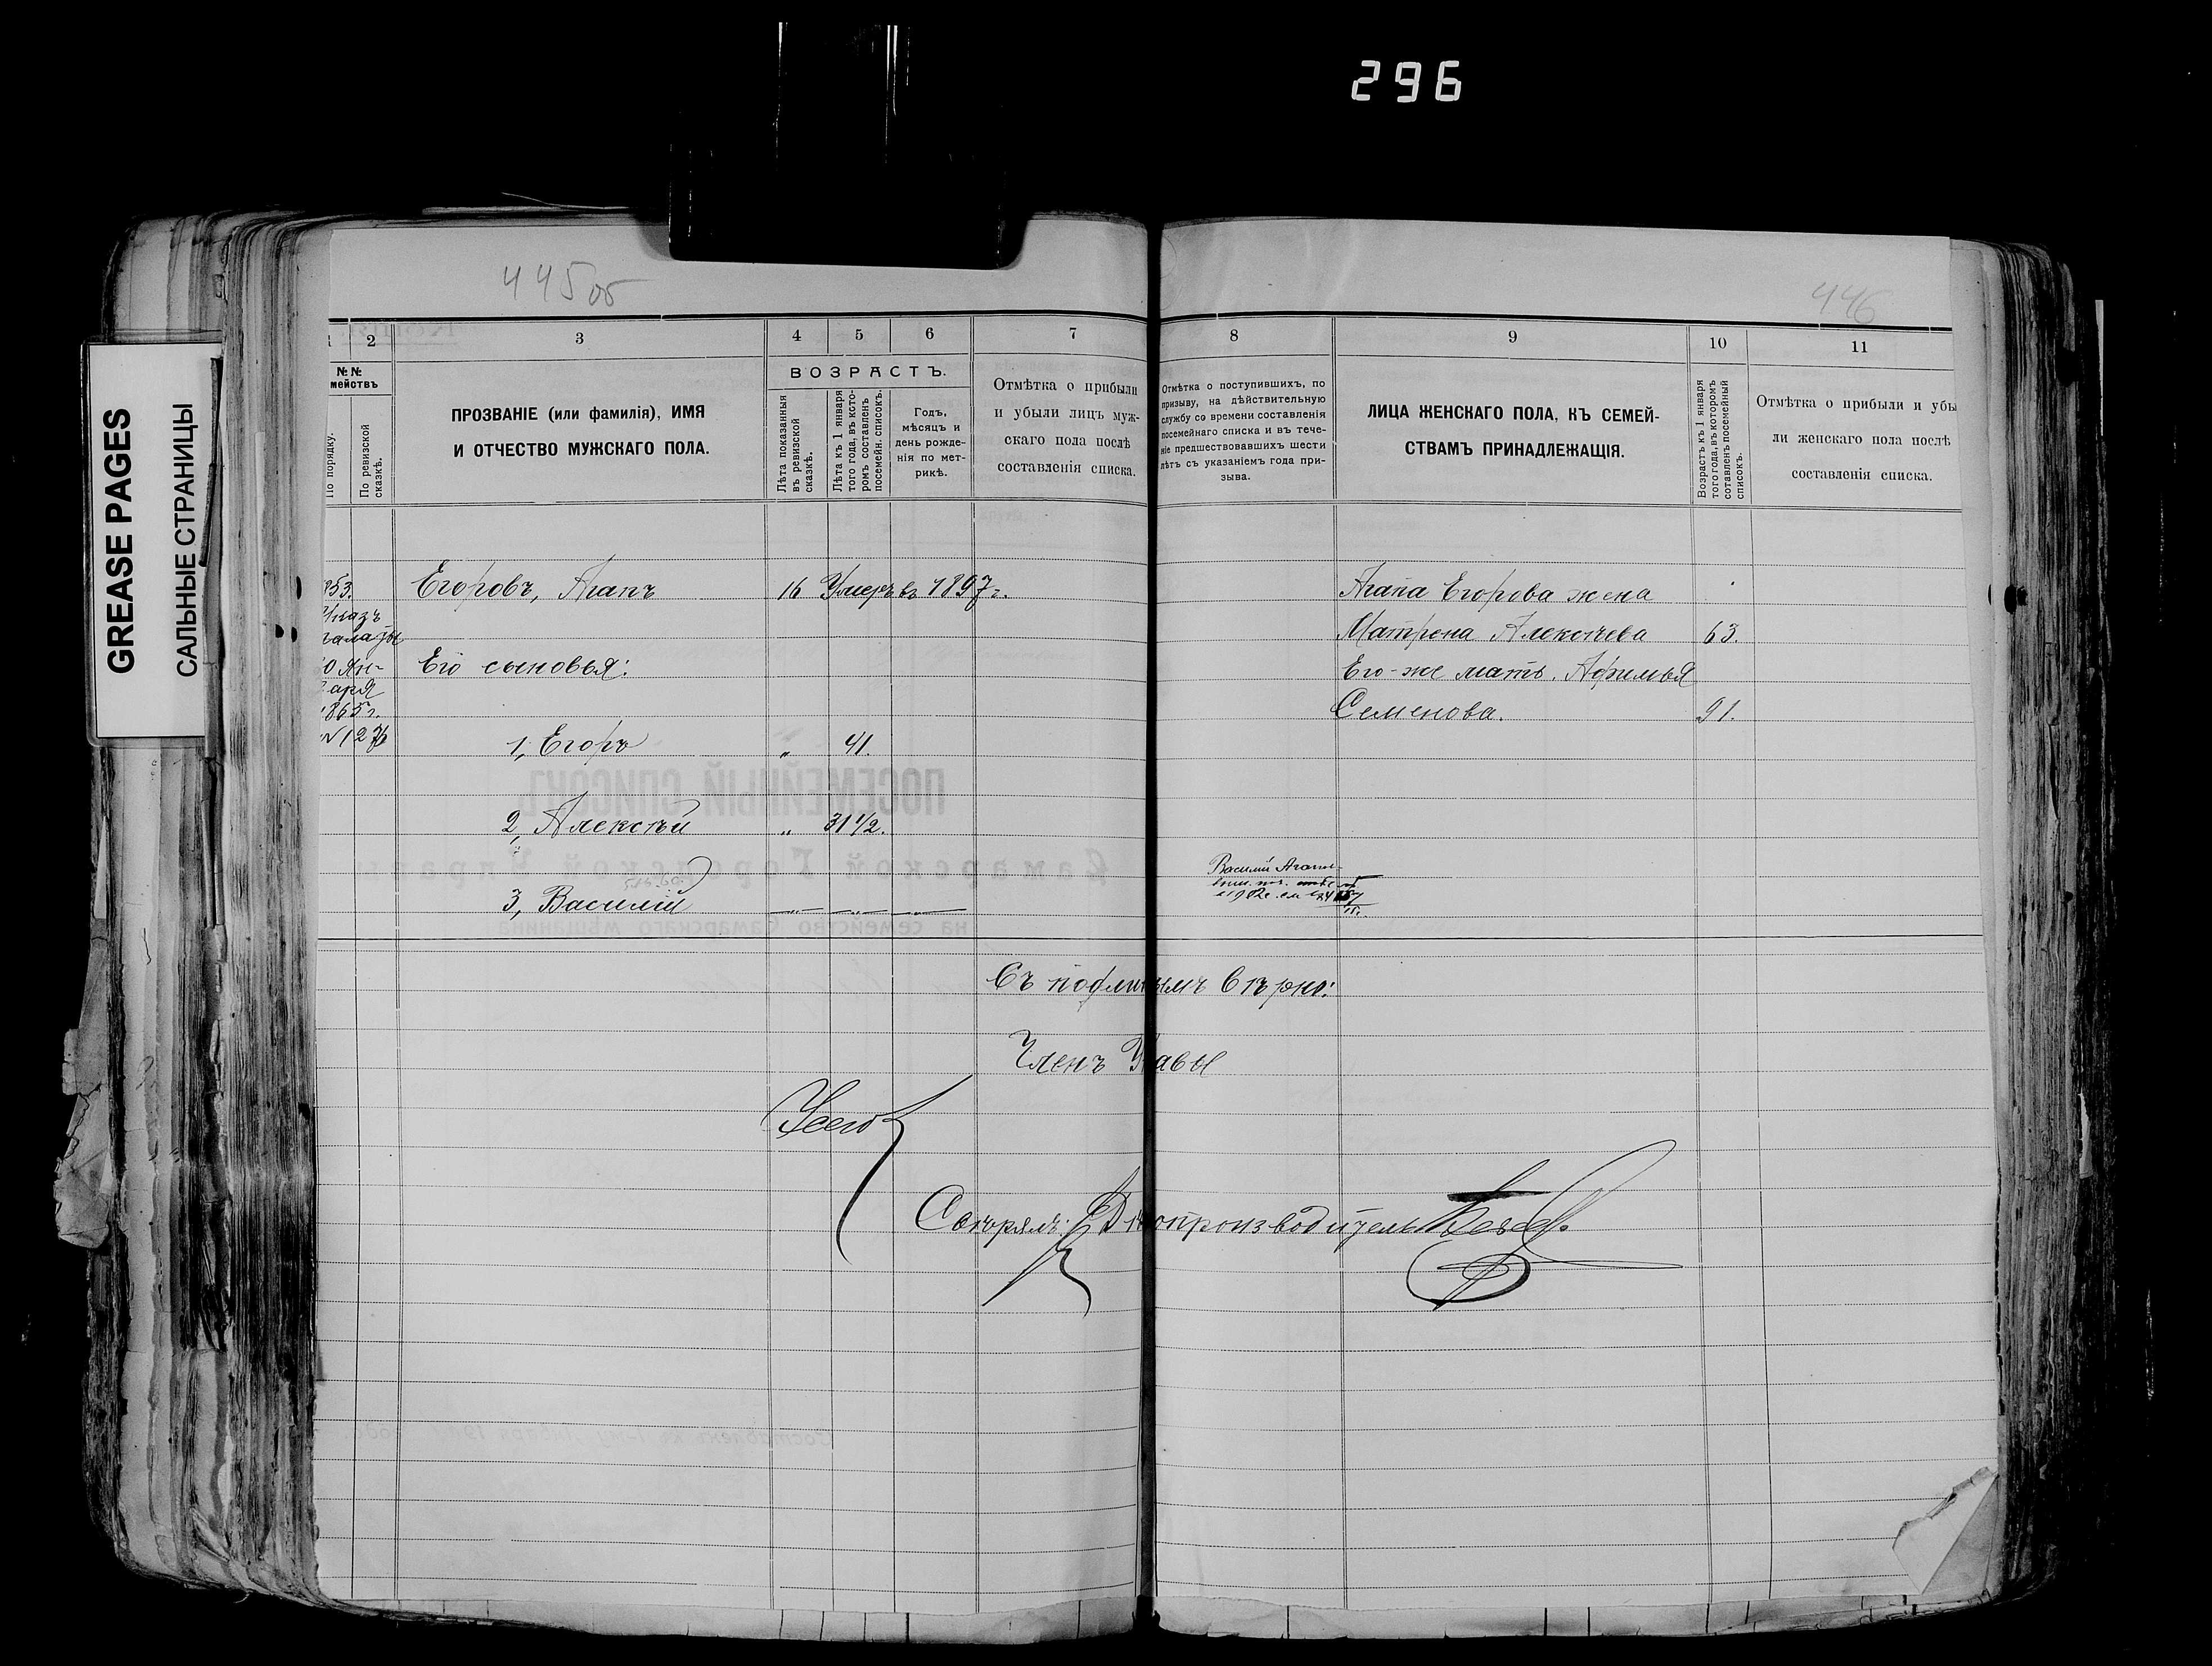 296
GREASE PAGES
САЛЬНЫЕ СТРАНИЦЫ
445об
446
1 2 3 4 5 6 7 8 9 10 11
№№
мействъ
По порядку.
По ревизской
сказкѣ.
ПРОЗВАНІЕ (или фамилія), ИМЯ
И ОТЧЕСТВО МУЖСКАГО ПОЛА.
ВОЗРАСТЪ.
Лѣта показанныя
въ ревизской
сказкѣ.
Лѣта къ 1 января
того года, въ кото-
ромъ составленъ
посемейн. списокъ.
Годъ,
мѣсяцъ и
день рожде-
нія по мет-
рикѣ.
Отмѣтка о прибыли
и убыли лицъ муж-
скаго пола послѣ
составленія списка.
Отмѣтка о поступившихъ, по
призыву, на дѣйствительную
службу со времени составленія
посемейнаго списка и въ тече-
ніе предшествовавшихъ шести
лѣтъ съ указаніемъ года при-
зыва.
ЛИЦА ЖЕНСКАГО ПОЛА, КЪ СЕМЕЙ-
СТВАМЪ ПРИНАДЛЕЖАЩІЯ.
Возрастъ къ 1 января
того года, въ которомъ
сотавленъ посемейный
списокъ.
Отмѣтка о прибыли и убы
ли женскаго пола послѣ
составленія списка.
853.
Указъ
палаты
0 Ян-
варя
1865 г.
№ 127
Егоровъ, Агапъ 16 Умеръ въ 1897 г.
Его сыновья:
1, Егоръ „ 41.
2, Алексѣй „ 31 1/2.
3, Василій —„— —„— —„—
Василій Агапи-
Агапа Егорова жена
Матрена Алексѣева 63.
Его-же мать, Афимья
Семенова. 91.
Съ подлиннымъ вѣрно:
Членъ Управы
Свѣрялъ: Дѣлопроизводитель